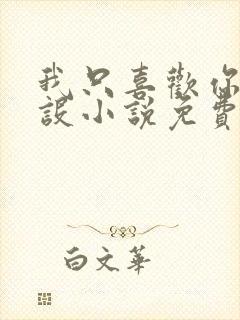 我只喜歡你
設小說免費
白文華